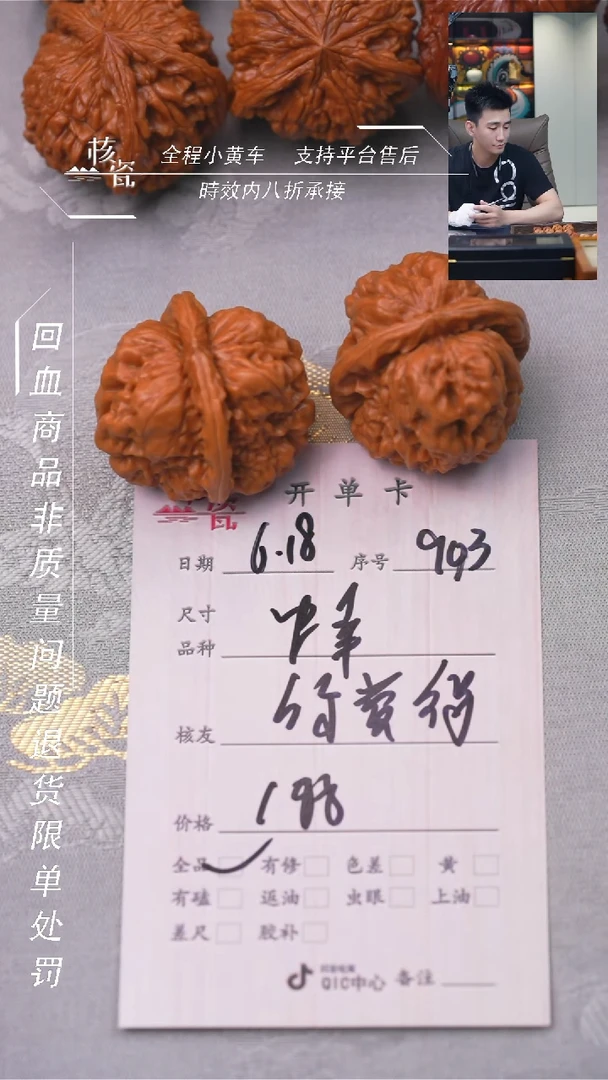 核瓷
全程小黄车 支持平台售后
時效内八折承接
回血商品非质量问题退货限单处罚
瓷 开单卡
日期 6.18 序号 903
尺寸
品种
核友
价格 198
全品 有修 色差 黄
有磕 返油 虫眼 上油
差尺 胶补
QIC中心 备注